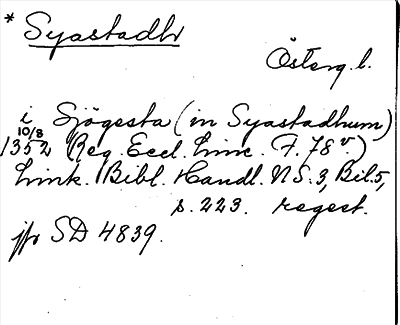 * Syastadhr
Österg. l.
i Sjögesta (in Syastadhum)
10/8
1352 (Reg. Eccl. Linc. F. 78 v.)
Link. Bibl. Handl. N S. 3, Bil. 5,
s. 223. regest.
jfr SD 4839.